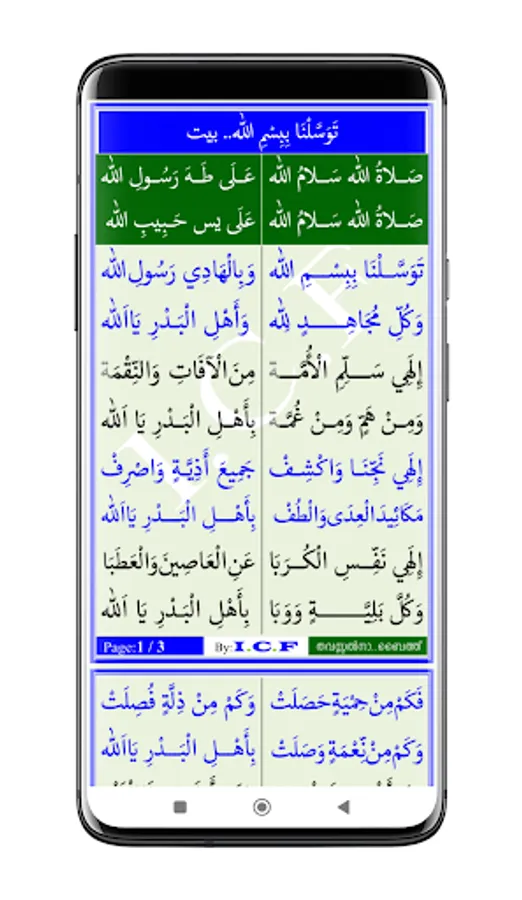 تَوَسَّلْنَا بِبِسْمِ الله.. بيت
صَـلَاةُ الله سَـلَامُ الله عَـلَى طٰـهَ رَسُـولِ الله
صَـلَاةُ الله سَـلَامُ الله عَلَى يس حَـبِيبِ الله
تَوَسَّـلْنَا بِبِسْـــمِ الله وَبِالْهَادِي رَسُولِ الله
وَكُلِّ مُجَاهِــــدٍ لِلّٰه وَأَهْلِ الْبَـدْرِ يَا اَلله
إِلٰهِي سَـلِّمِ الْأُمَّـــة مِنَ الْآفَاتِ وَالنِّقْمَة
وَمِـنْ هَمٍّ وَمِـنْ غُمَّـة بِأَهْـلِ الْبَـدْرِ يَا اَلله
إِلٰهِي نَجِّنَـا وَاكْشِـفْ جَمِيعَ أَذِيَّةٍ وَاصْرِفْ
مَكَائِيدَ الْعِدَى وَالْطُفْ بِأَهْـلِ الْبَـدْرِ يَا اَلله
إِلٰهِي نَفِّـسِ الْكُـرَبَا عَنِ الْعَاصِينَ وَالْعَطَبَا
وَكُلَّ بَلِيَّـــــةٍ وَوَبَا بِأَهْلِ الْبَـدْرِ يَا اَلله
Page:1 / 3 By:I.C.F തവസ്സൽനാ..ബൈത്ത്
فَكَمْ مِنْ حِمْيَةٍ حَصَلَتْ وَكَمْ مِنْ ذِلَّةٍ فُصِلَتْ
وَكَمْ مِنْ نِّعْمَةٍ وَصَلَتْ بِأَهْـلِ الْبَـدْرِ يَا اَلله
I.C.F